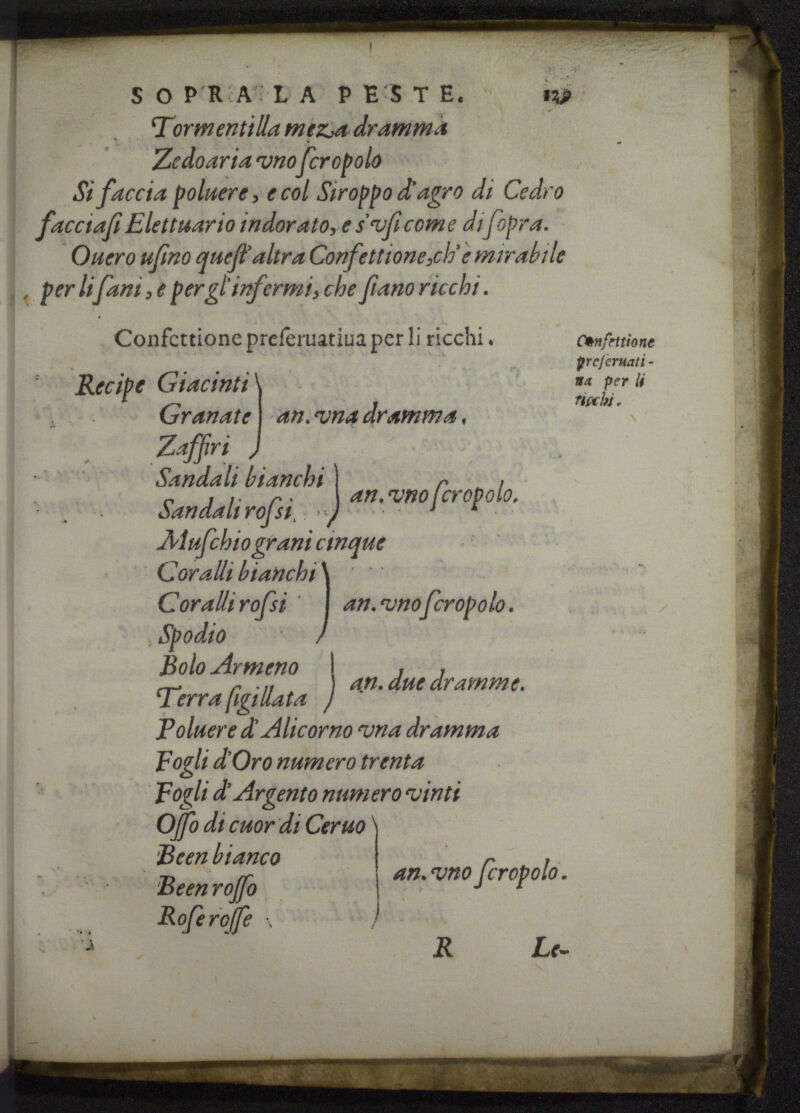 SOPRA LA PESTE. 129
Tormentilla meza dramma
Zedoaria vno scropolo
Si faccia poluere, e col Siroppo d'agro di Cedro
facciasi Elettuario indorato, e s'vsi come di sopra.
Ouero usino quest'altra Confettione, ch'è mirabile
per li sani, e per gl'infermi, che siano ricchi.
Confettione preseruatiua per li ricchi.
Confettione
preseruati-
ua per li
ricchi.
Recipe Giacinti
Granate an. vna dramma.
Zaffiri
Sandali bianchi
an. vno scropolo.
Sandali rossi
Muschio grani cinque
Coralli bianchi
Coralli rossi an. vno scropolo.
Spodio
Bolo Armeno
an. due dramme.
Terra sigillata
Poluere d'Alicorno vna dramma
Fogli d'Oro numero trenta
Fogli d'Argento numero vinti
Osso di cuor di Ceruo
Been bianco
an. vno scropolo.
Been rosso
Rose rosse
R Le-